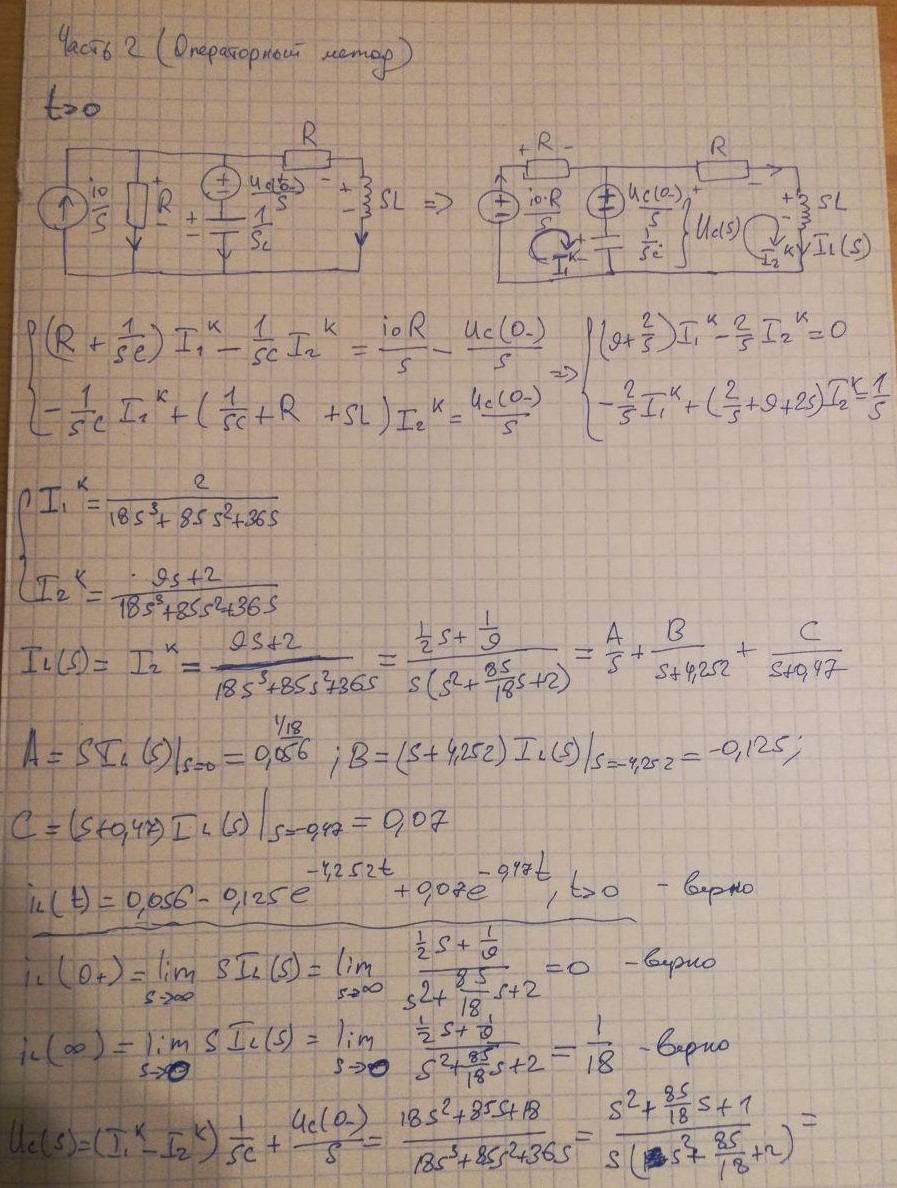 Часть 2 (Операторный метод)
t>0
i₀/s R Uc(0-)/s 1/sc R SL => + R - i₀·R/s Uc(0-)/s 1/sc Uc(s) R SL I₁ᴷ I₂ᴷ IL(s)
{ (R + 1/sc) I₁ᴷ - 1/sc I₂ᴷ = i₀R/s - Uc(0-)/s => { (9+2/s)I₁ᴷ - 2/s I₂ᴷ = 0
-1/sc I₁ᴷ + (1/sc + R + SL) I₂ᴷ = Uc(0-)/s -2/s I₁ᴷ + (2/s + 9 + 2s) I₂ᴷ = 1/s
{ I₁ᴷ = 2/(18s³ + 85s² + 36s)
I₂ᴷ = (9s+2)/(18s³+85s²+36s)
IL(s) = I₂ᴷ = (9s+2)/(18s³+85s²+36s) = (1/2 s + 1/9)/(s(s² + 85/18 s + 2)) = A/s + B/(s+4,252) + C/(s+0,47)
A = S IL(s)|s=0 = 1/18 0,056 ; B = (s+4,252) IL(s)|s=-4,252 = -0,125;
C = (s+0,47) IL(s)|s=-0,47 = 0,07
iL(t) = 0,056 - 0,125e^(-4,252t) + 0,07e^(-0,47t), t>0 - верно
iL(0+) = lim s→∞ S IL(s) = lim s→∞ (1/2 s + 1/9)/(s² + 85/18 s + 2) = 0 - верно
iL(∞) = lim s→0 S IL(s) = lim s→0 (1/2 s + 1/9)/(s² + 85/18 s + 2) = 1/18 - верно
Uc(s) = (I₁ᴷ - I₂ᴷ) 1/sc + Uc(0-)/s = (18s² + 85s + 18)/(18s³ + 85s² + 36s) = (s² + 85/18 s + 1)/(s(s² + 85/18 + 2)) =